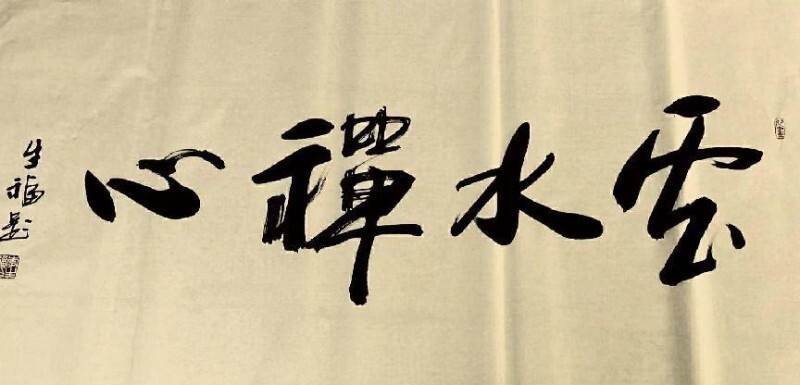 雲水禪心
生福影